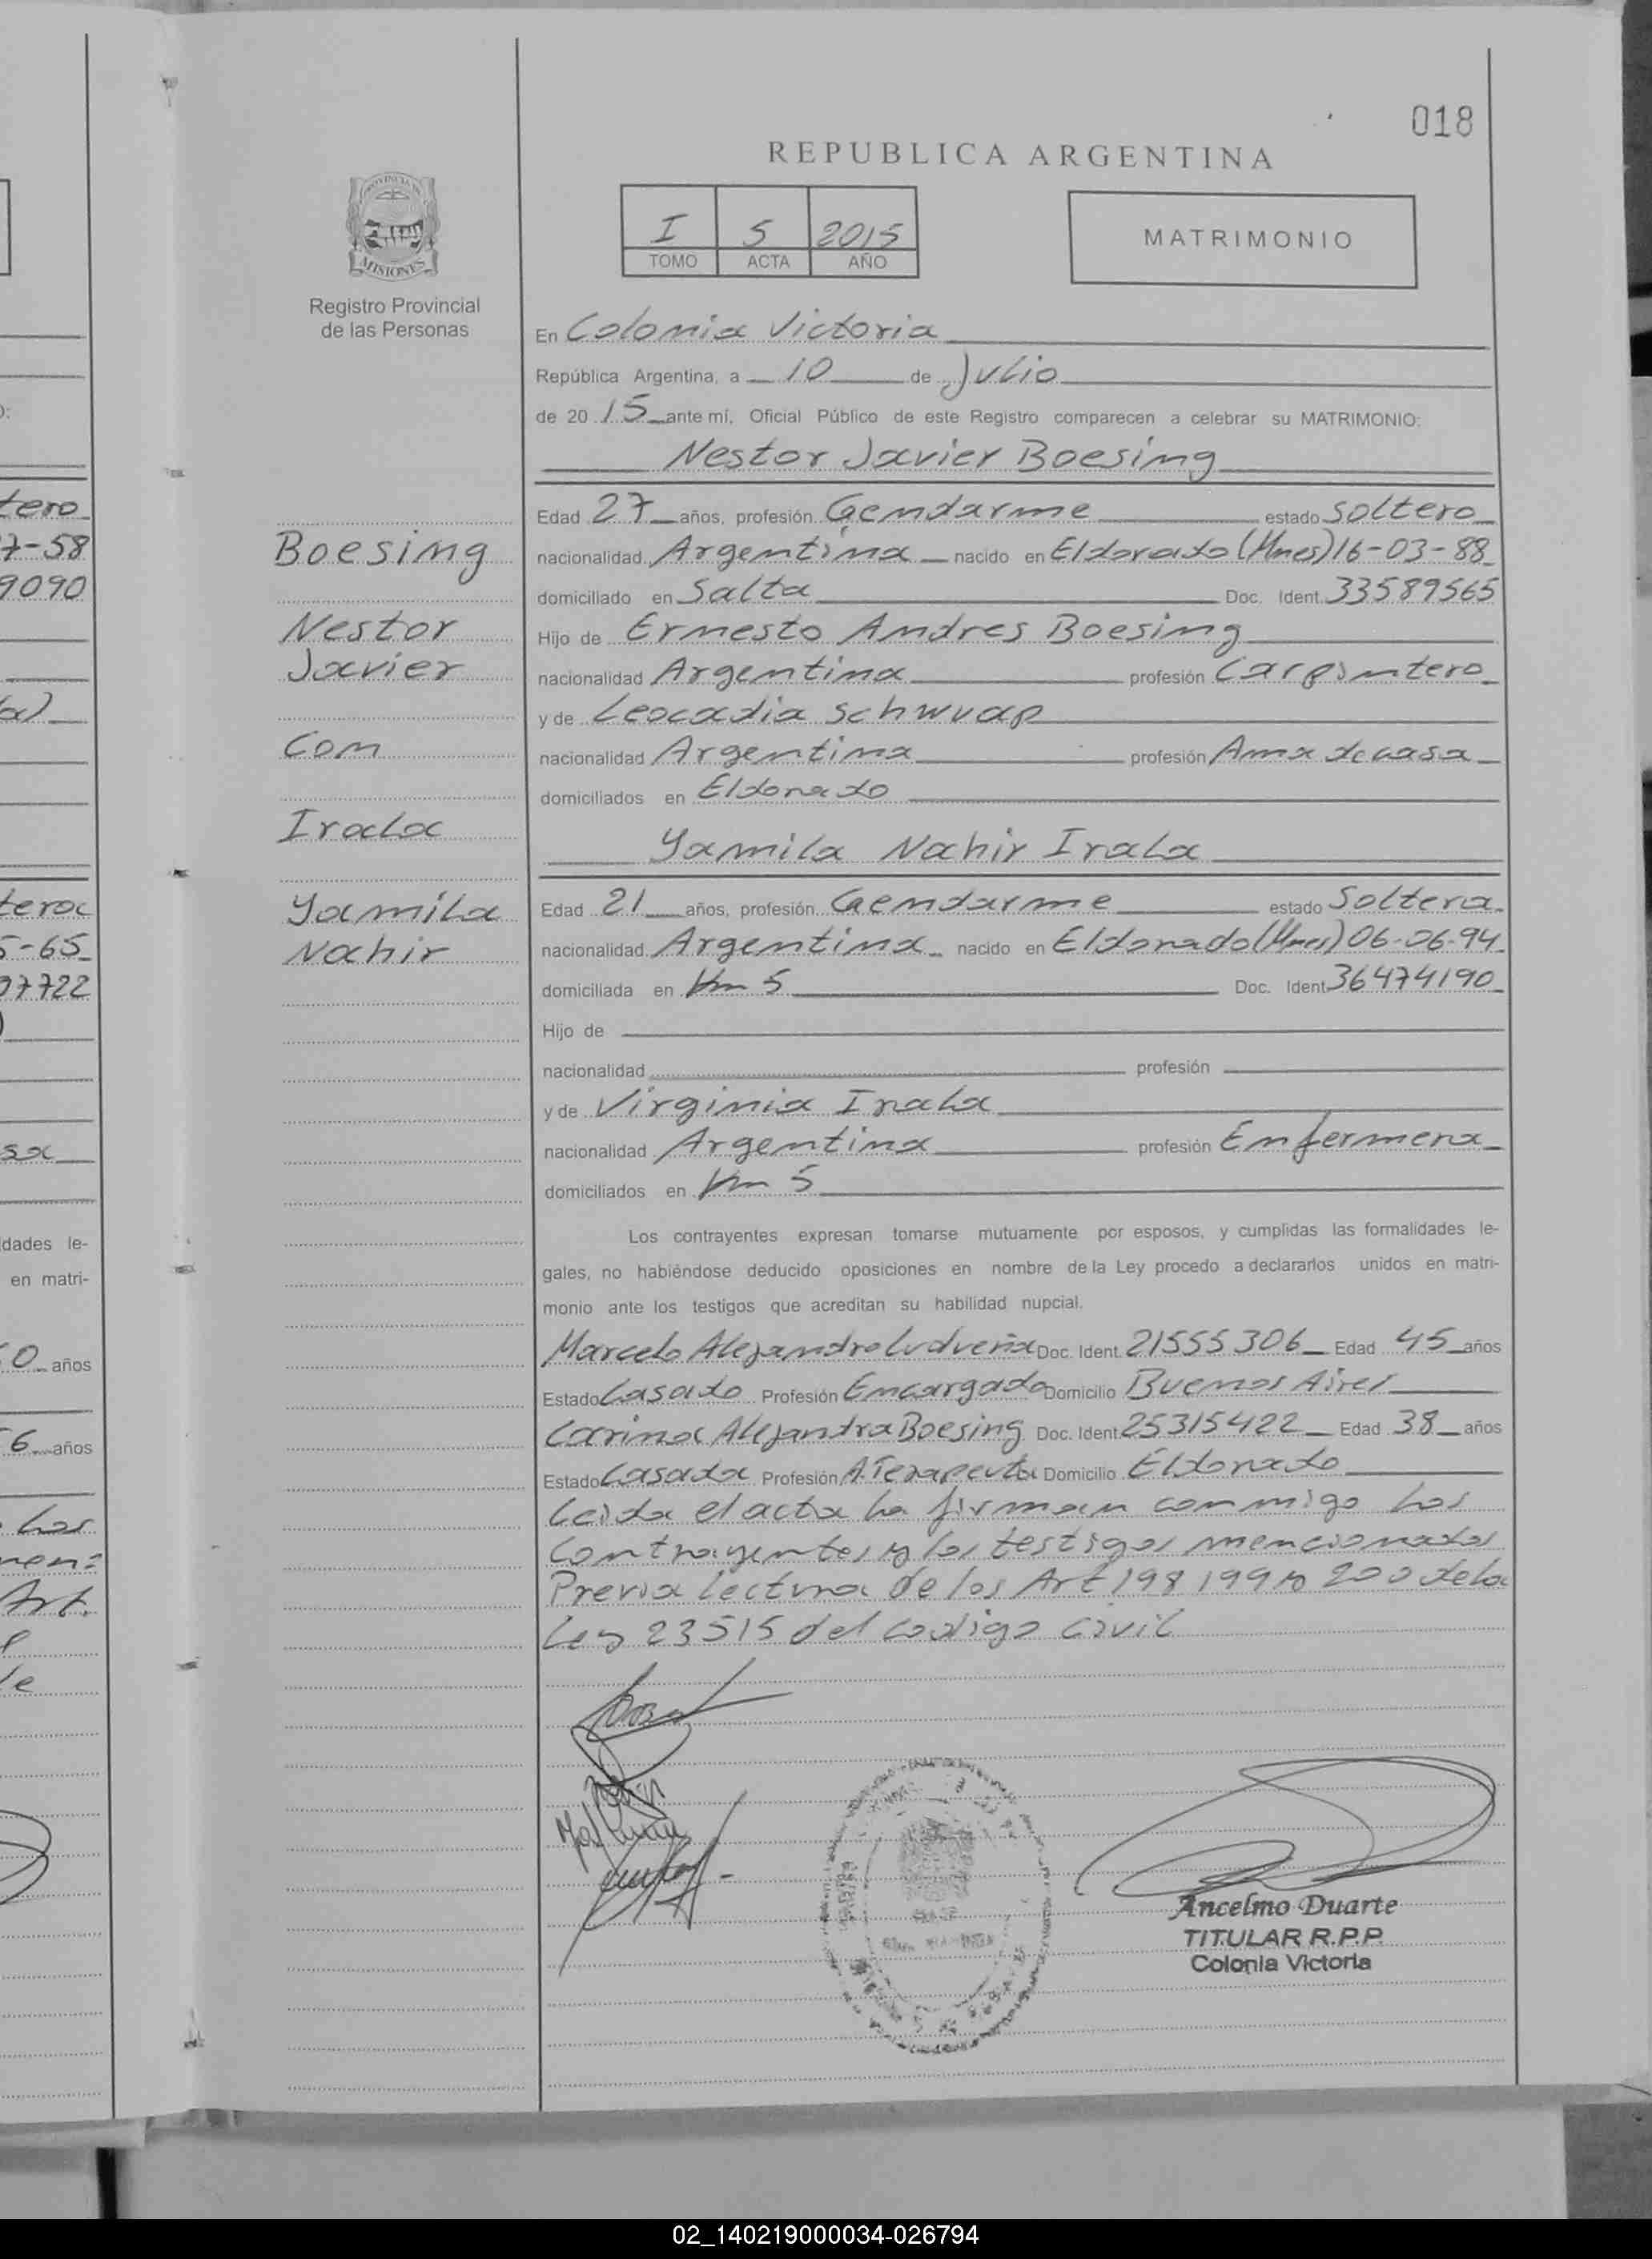 018
REPUBLICA ARGENTINA
PROVINCIA DE
MISIONES
Registro Provincial
de las Personas
I 5 2015
TOMO ACTA AÑO
MATRIMONIO
En Colonia Victoria
República Argentina, a 10 de Julio
de 20 15 ante mí, Oficial Público de este Registro comparecen a celebrar su MATRIMONIO:
Nestor Javier Boesing
Edad 27 años, profesión Gendarme estado Soltero
nacionalidad Argentina nacido en Eldorado (Mnes) 16-03-88
domiciliado en Salta Doc. Ident. 33589565
Hijo de Ernesto Andres Boesing
nacionalidad Argentina profesión Carpintero
y de Leocadia Schwuap
nacionalidad Argentina profesión Ama de casa
domiciliados en Eldorado
Yamila Nahir Irala
Edad 21 años, profesión Gendarme estado Soltera
nacionalidad Argentina nacido en Eldorado (Mnes) 06-06-94
domiciliada en Km 5 Doc. Ident. 36474190
Hijo de
nacionalidad profesión
y de Virginia Irala
nacionalidad Argentina profesión Enfermera
domiciliados en Km 5
Los contrayentes expresan tomarse mutuamente por esposos, y cumplidas las formalidades le-
gales, no habiéndose deducido oposiciones en nombre de la Ley procedo a declararlos unidos en matri-
monio ante los testigos que acreditan su habilidad nupcial.
Marcelo Alejandro Ludueña Doc. Ident. 21555306 Edad 45 años
Estado Casado Profesión Encargado Domicilio Buenos Aires
Carina Alejandra Boesing Doc. Ident. 25315422 Edad 38 años
Estado Casada Profesión A.Terapeuta Domicilio Eldorado
Leida el acta la firman conmigo los
contrayentes y los testigos mencionados
Previa lectura de los Art 198 199 y 200 de la
Ley 23515 del codigo civil
Boesing
Nestor
Javier
Con
Irala
Yamila
Nahir
Ancelmo Duarte
TITULAR R.P.P.
Colonia Victoria
tero
7-58
9090
tera
5-65
07722
sa
dades le-
en matri-
0 años
6 años
los
Art.
02_140219000034-026794